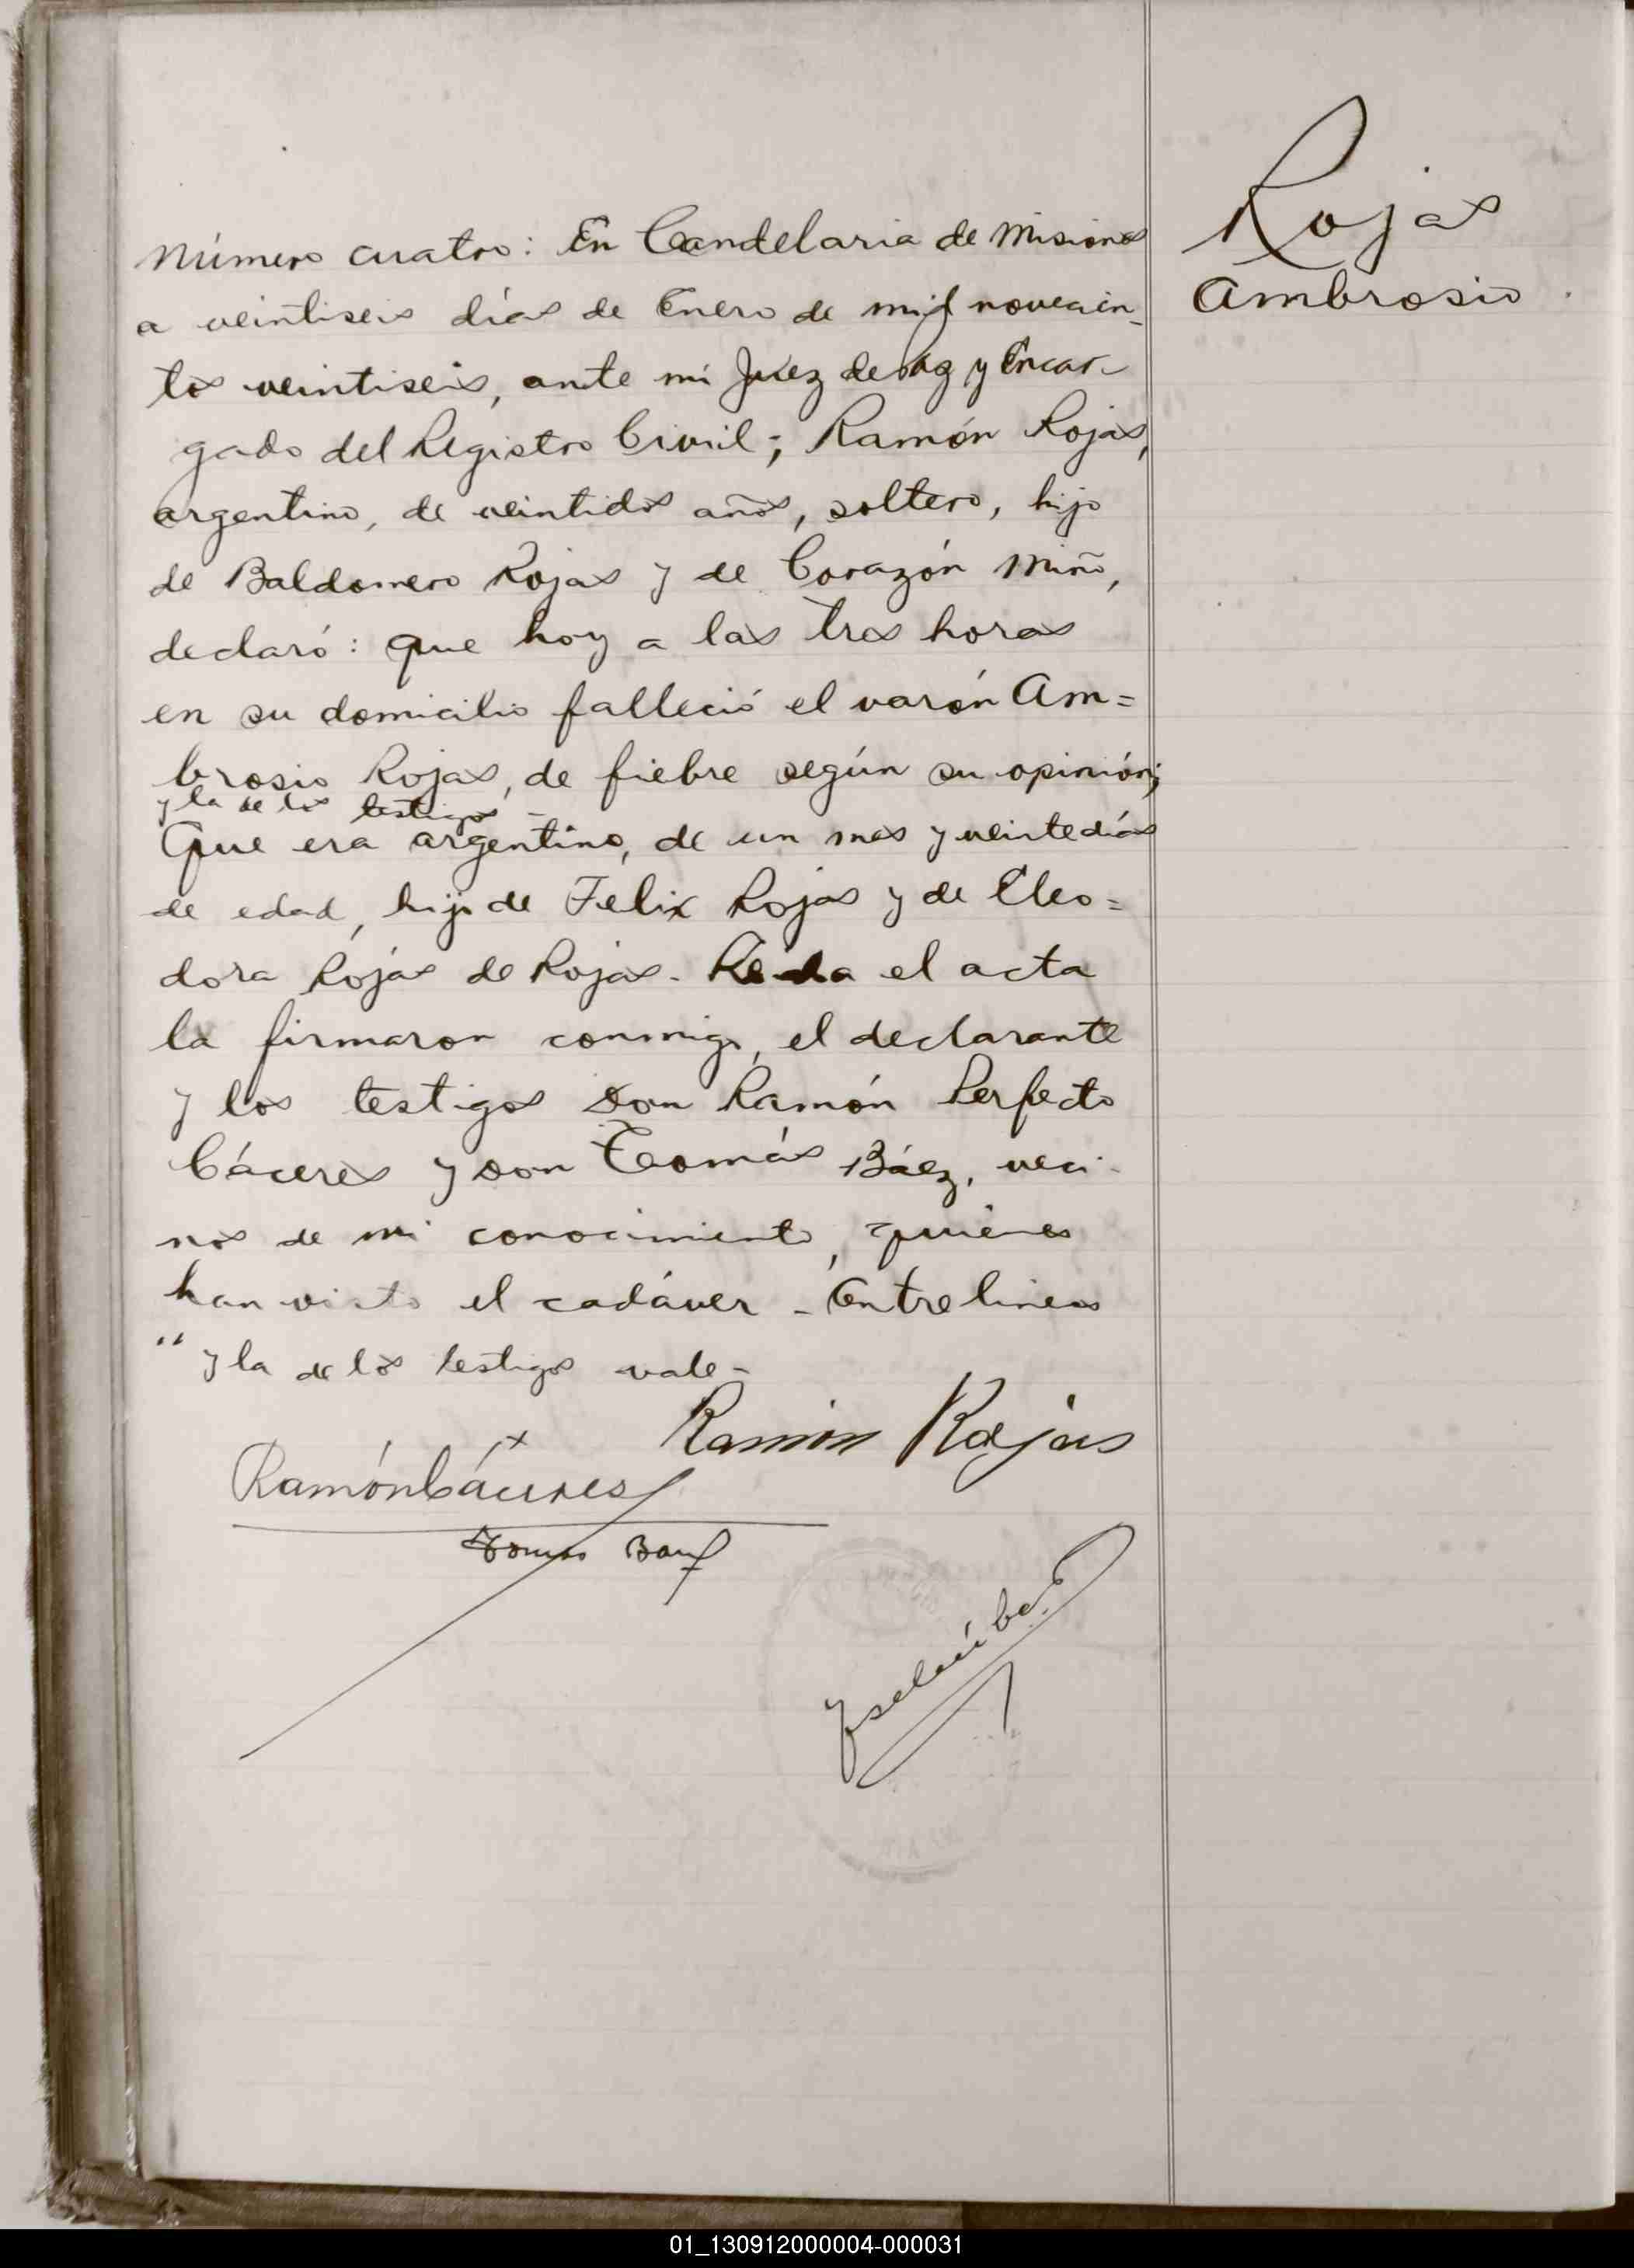 Rojas
Ambrosio
Número cuatro: En Candelaria de Misiones
a veintiseis días de Enero de mil novecien-
tos veintiseis, ante mi Juez de Paz y Encar-
gado del Registro Civil; Ramón Rojas,
argentino, de veintidos años, soltero, hijo
de Baldomero Rojas y de Corazón Miño,
declaró: que hoy a las tres horas
en su domicilio falleció el varón Am=
brosio Rojas, de fiebre según su opinión;
y la de los testigos -
Que era argentino, de un mes y veinte días
de edad, hijo de Felix Rojas y de Eleo=
dora Rojas de Rojas. Leida el acta
la firmaron conmigo, el declarante
y los testigos Don Ramón Perfecto
Cáceres y Don Tomás Báez, veci-
nos de mi conocimiento, quiénes
han visto el cadáver - Entre lineas
" y la de los testigos vale -
Ramón Rojas
Ramón Cáceres
Tomas Baez
01_130912000004-000031